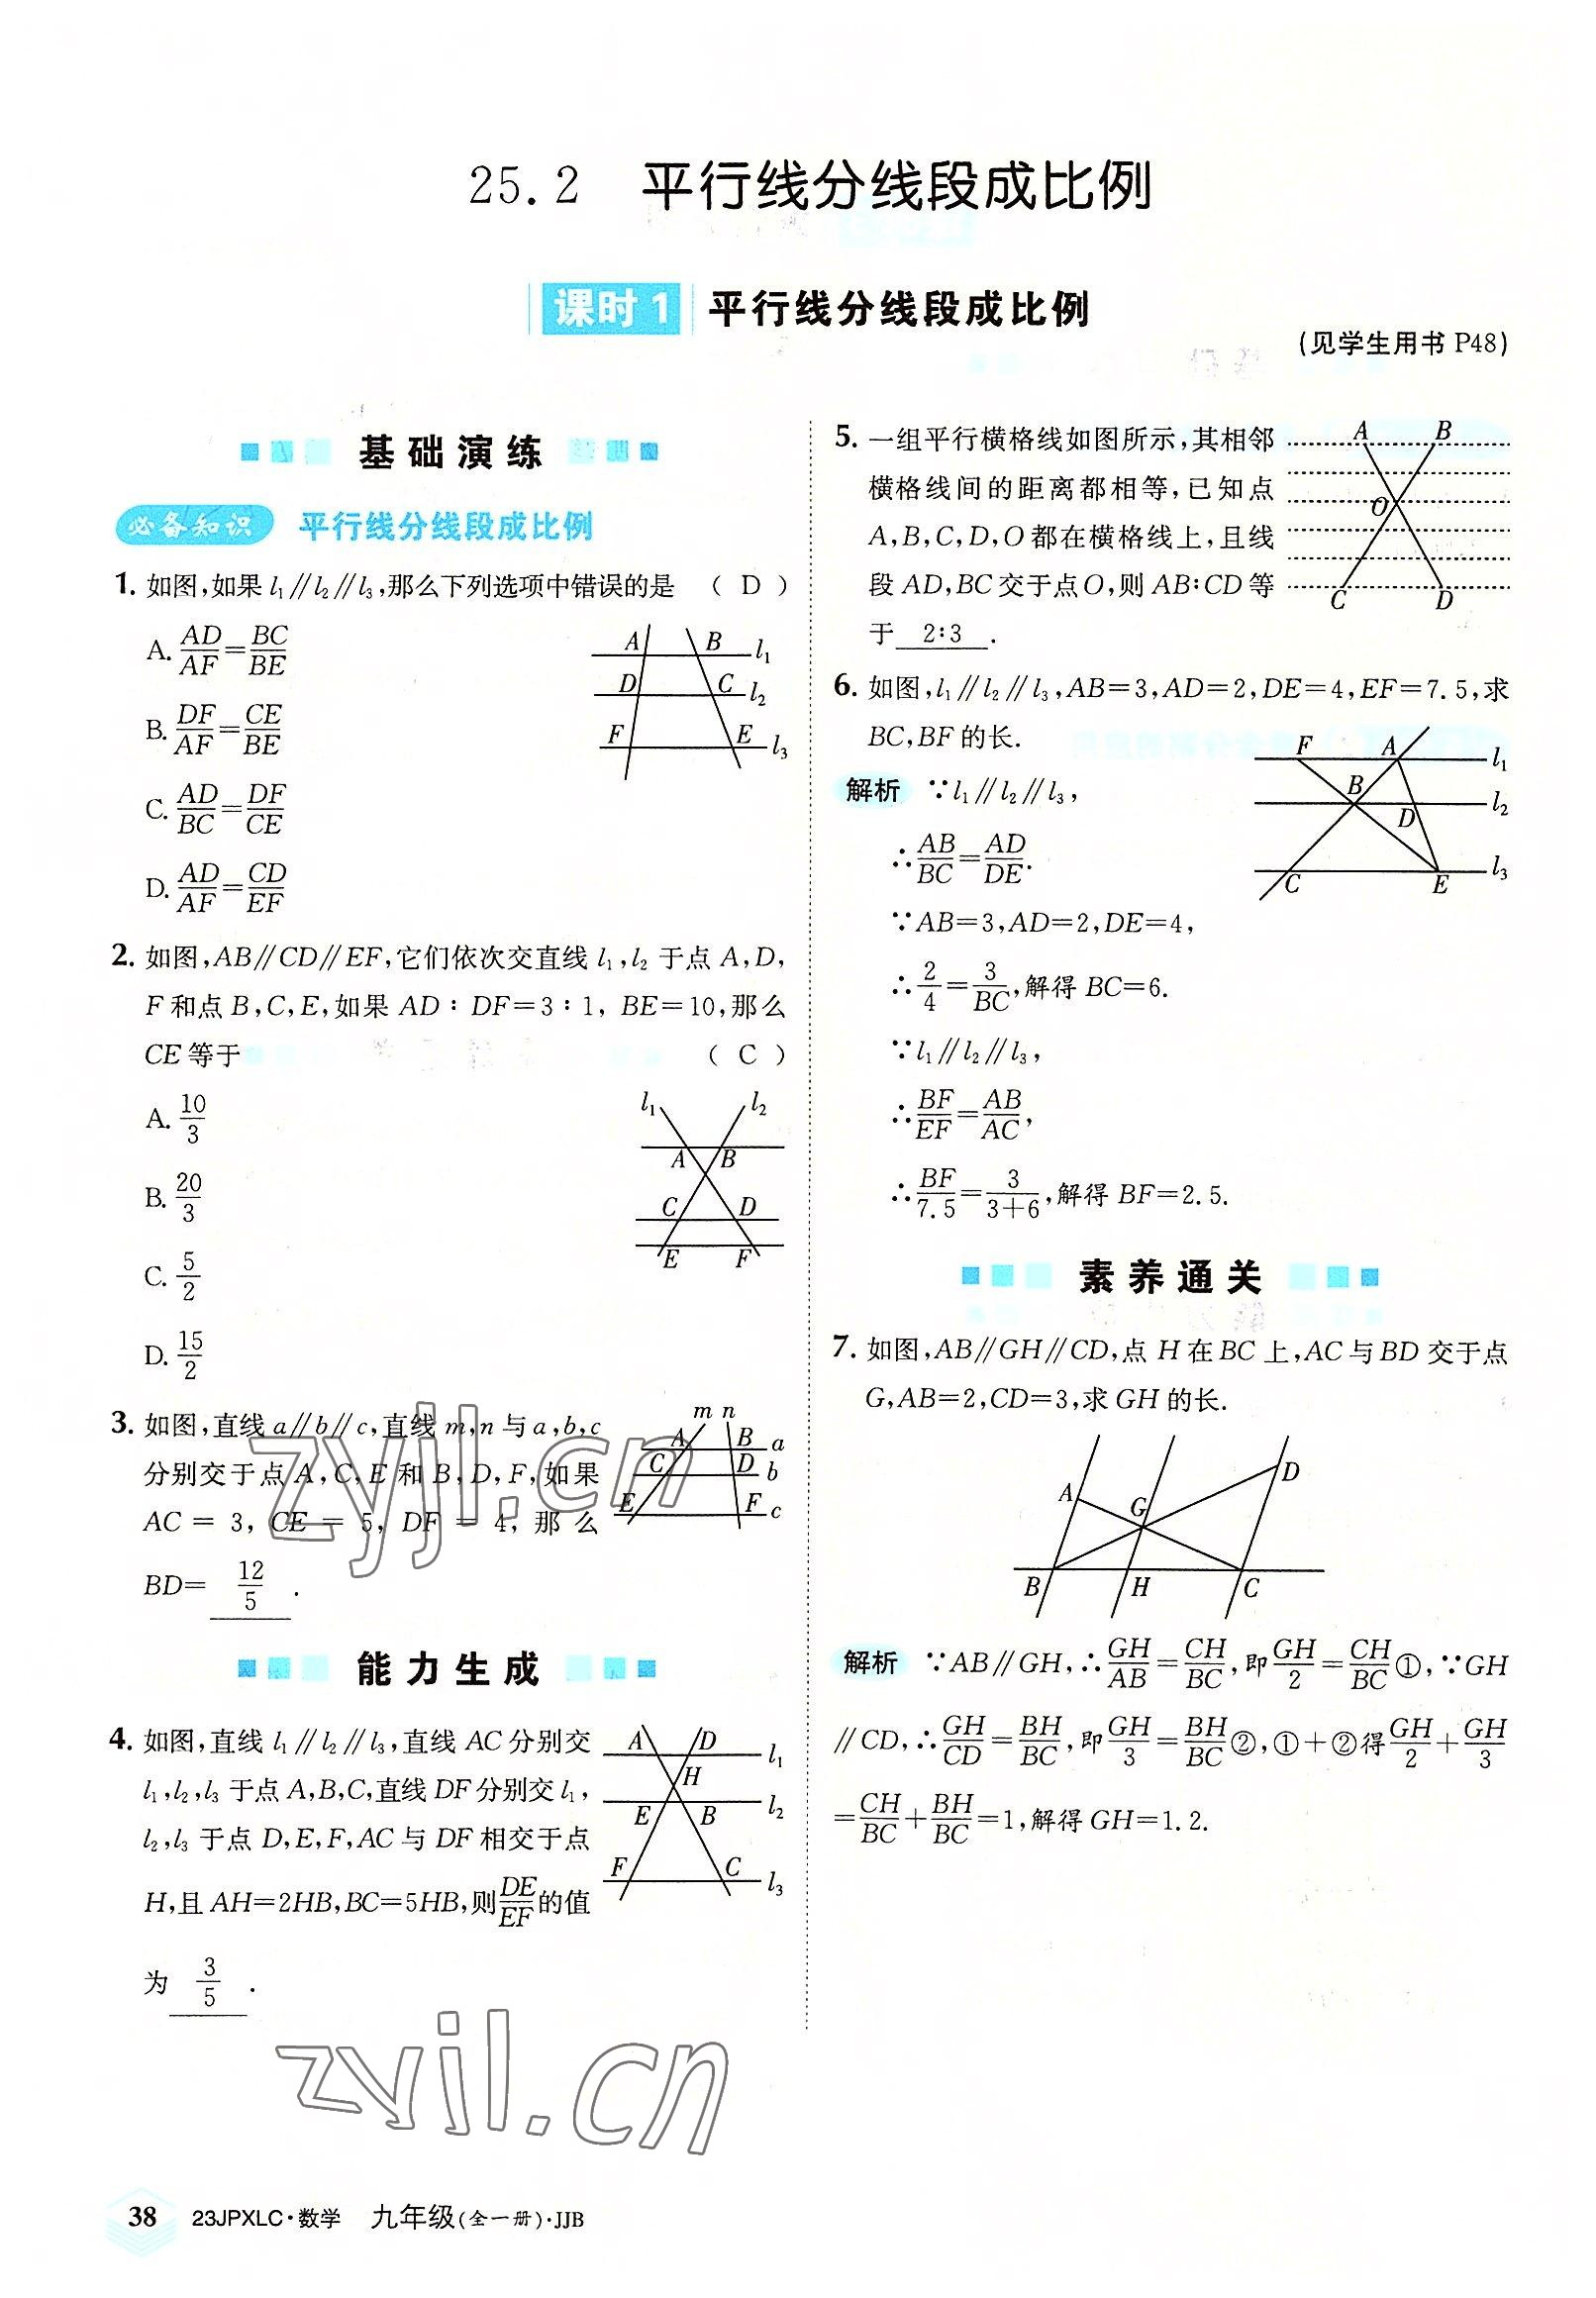 25.2　平行线分线段成比例
课时1 平行线分线段成比例
(见学生用书 P48)
基础演练
必备知识 平行线分线段成比例
1. 如图,如果 l₁∥l₂∥l₃,那么下列选项中错误的是 ( D )
A. AD/AF=BC/BE
B. DF/AF=CE/BE
C. AD/BC=DF/CE
D. AD/AF=CD/EF
A B l₁
D C l₂
F E l₃
2. 如图,AB∥CD∥EF,它们依次交直线 l₁,l₂ 于点 A,D,
F 和点 B,C,E,如果 AD∶DF=3∶1, BE=10,那么
CE 等于 ( C )
A. 10/3
B. 20/3
C. 5/2
D. 15/2
l₁ l₂
A B
C D
E F
3. 如图,直线 a∥b∥c,直线 m,n 与 a,b,c
分别交于点 A,C,E 和 B,D,F,如果
AC = 3, CE = 5, DF = 4, 那么
BD= 12/5 .
m n
A B a
C D b
E F c
能力生成
4. 如图,直线 l₁∥l₂∥l₃,直线 AC 分别交
l₁,l₂,l₃ 于点 A,B,C,直线 DF 分别交 l₁,
l₂,l₃ 于点 D,E,F,AC 与 DF 相交于点
H,且 AH=2HB,BC=5HB,则DE/EF的值
为 3/5 .
A D l₁
H
E B l₂
F C l₃
5. 一组平行横格线如图所示,其相邻
横格线间的距离都相等,已知点
A,B,C,D,O 都在横格线上,且线
段 AD,BC 交于点 O,则 AB∶CD 等
于 2∶3 .
A B
O
C D
6. 如图,l₁∥l₂∥l₃,AB=3,AD=2,DE=4,EF=7.5,求
BC,BF 的长.
F A l₁
B D l₂
C E l₃
解析 ∵l₁∥l₂∥l₃,
∴AB/BC=AD/DE.
∵AB=3,AD=2,DE=4,
∴2/4=3/BC,解得 BC=6.
∵l₁∥l₂∥l₃,
∴BF/EF=AB/AC,
∴BF/7.5=3/(3+6),解得 BF=2.5.
素养通关
7. 如图,AB∥GH∥CD,点 H 在 BC 上,AC 与 BD 交于点
G,AB=2,CD=3,求 GH 的长.
A G D
B H C
解析 ∵AB∥GH,∴GH/AB=CH/BC,即GH/2=CH/BC①,∵GH
∥CD,∴GH/CD=BH/BC,即GH/3=BH/BC②,①+②得GH/2+GH/3
=CH/BC+BH/BC=1,解得 GH=1.2.
zyjl.cn
zyjl.cn
38 23JPXLC·数学 九年级(全一册)·JJB